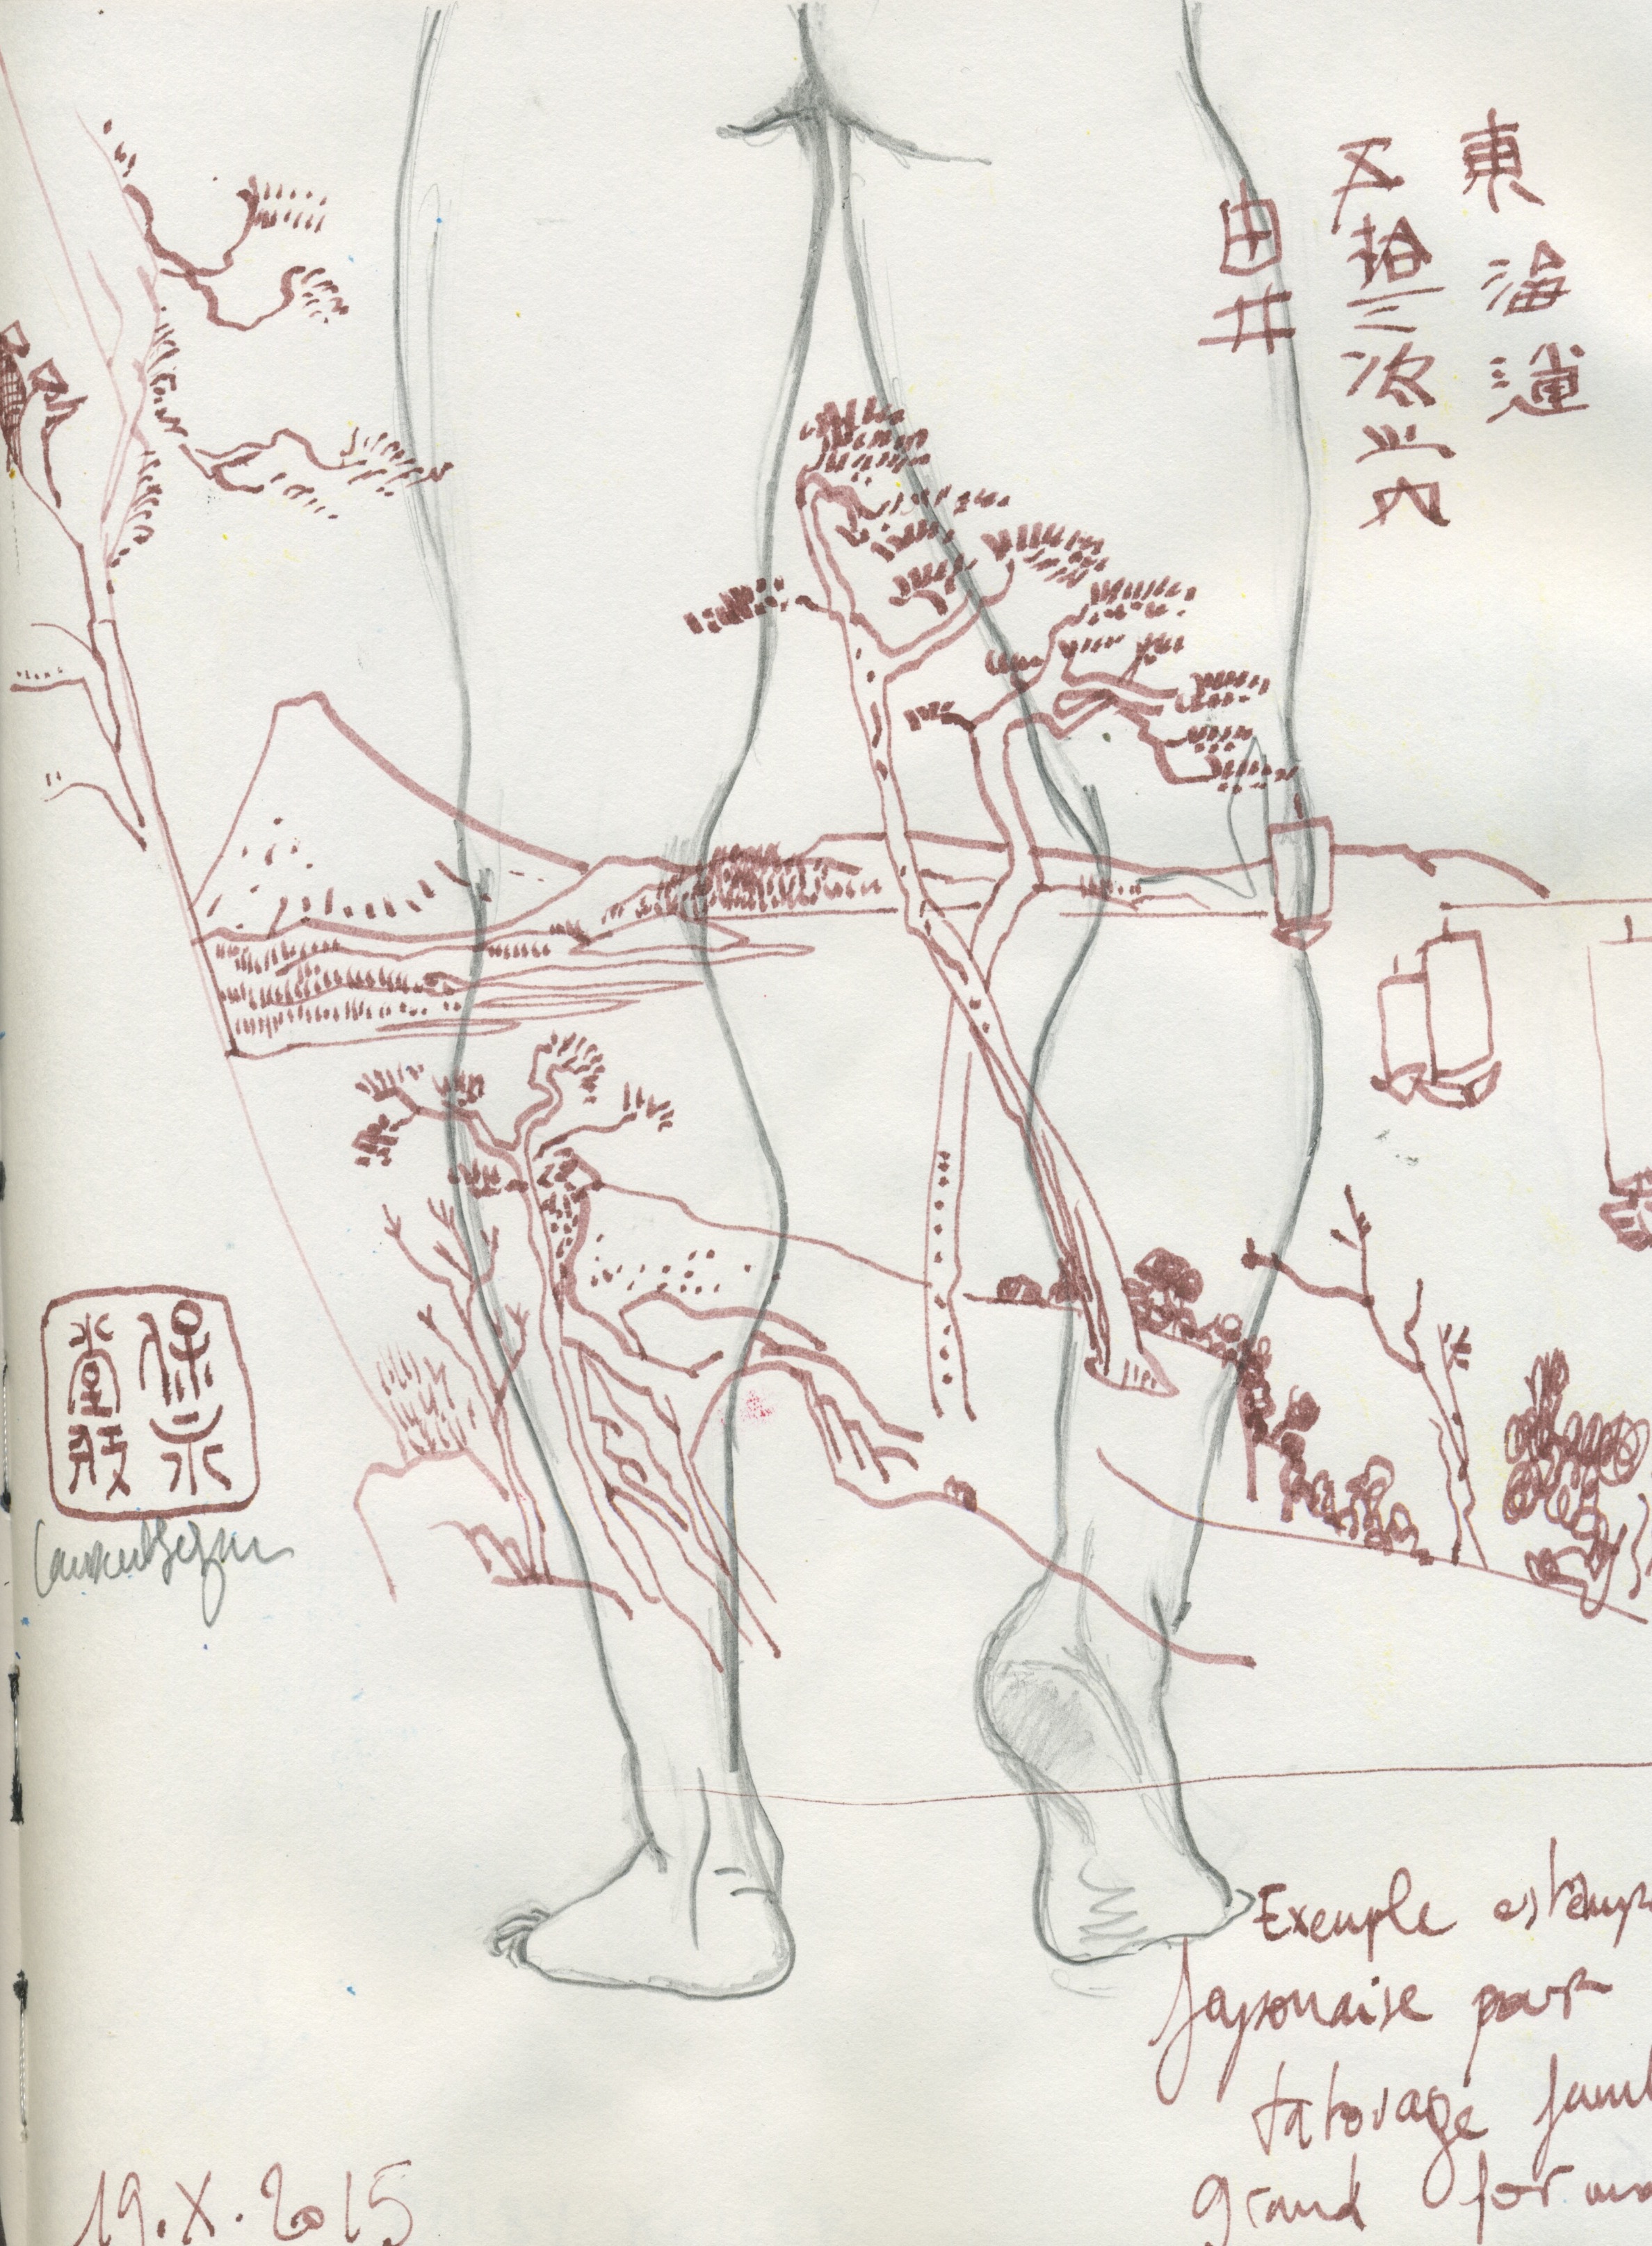 東海道
五拾三次之内
由井
保永
堂版
Exemple estamp
Japonaise pour
tatouage jamb
grand forma
19.X.2015